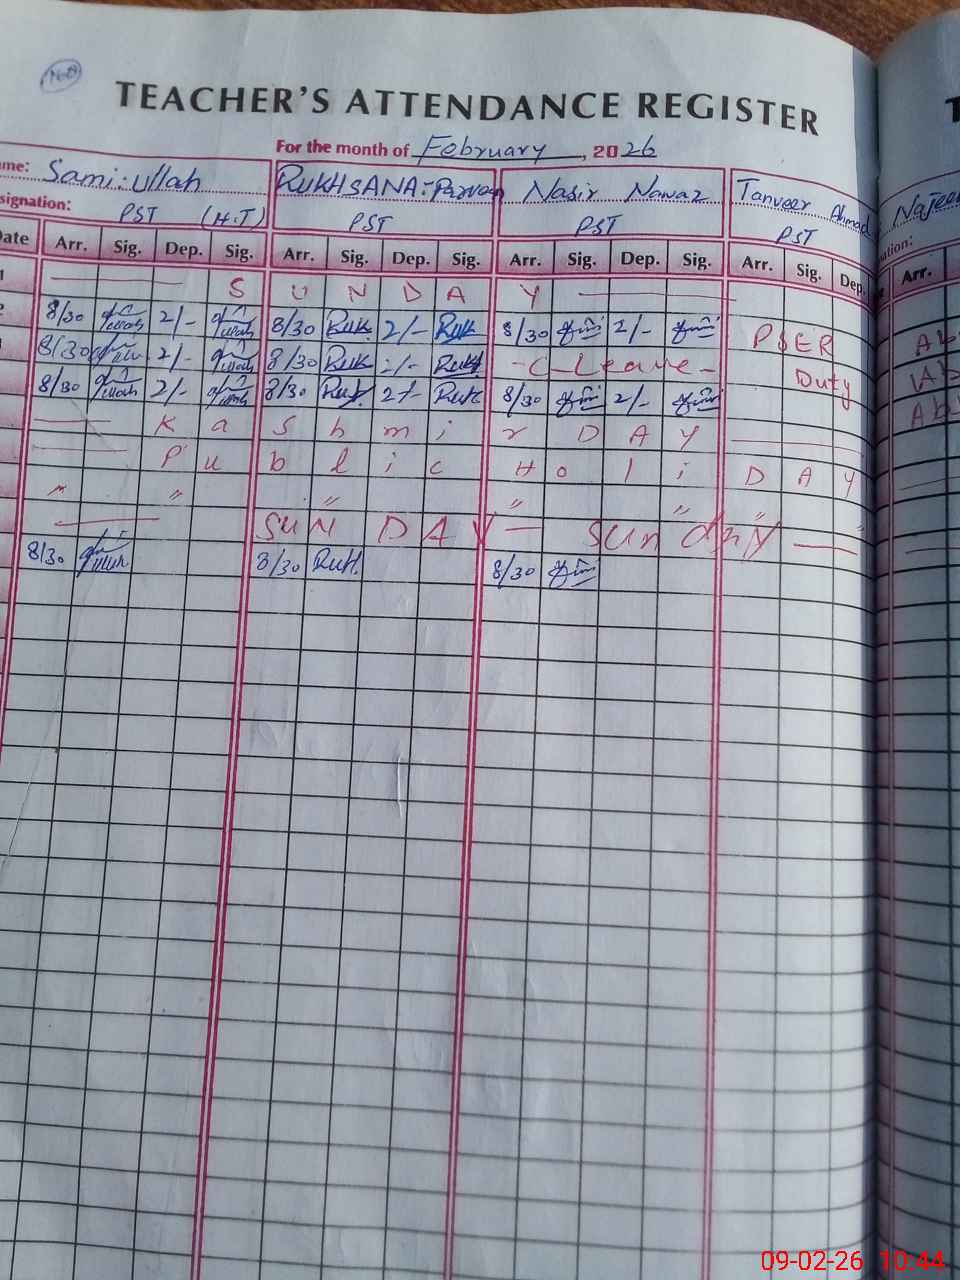 TEACHER'S ATTENDANCE REGISTER
For the month of February, 2026
ame: Sami:ullah RUKHSANA:-Parveen Nasir Nawaz Tanveer Ahmad Najeeb
signation: PST (H.T) PST PST PST nation:
Date Arr. Sig. Dep. Sig. Arr. Sig. Dep. Sig. Arr. Sig. Dep. Sig. Arr. Sig. Dep. Arr.
1 S U N D A Y
2 8/30 2/- 8/30 Ruk 2/- Ruk 8/30 2/- PSER Ab
8/30 2/- 8/30 Ruk 2/- Ruk - C - Leave - Duty Ab
8/30 2/- 8/30 Ruk 2/- Ruk 8/30 2/- Ab
K a s h m i r D A Y
P u b l i c H o l i D A Y
" " " " " " "
SUNDAY - sundAy
8/30 8/30 Ruk. 8/30
09-02-26 10:44